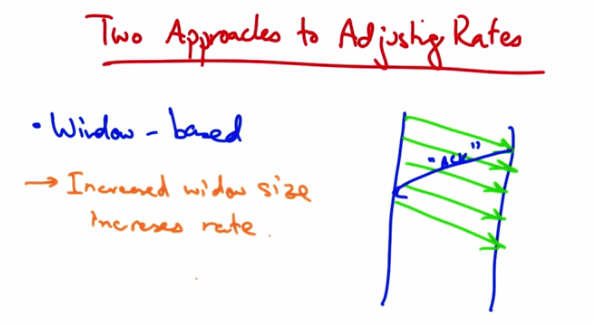 Two Approaches to Adjusting Rates
• Window-based
→ Increased widow size
increses rate.
"ACK"